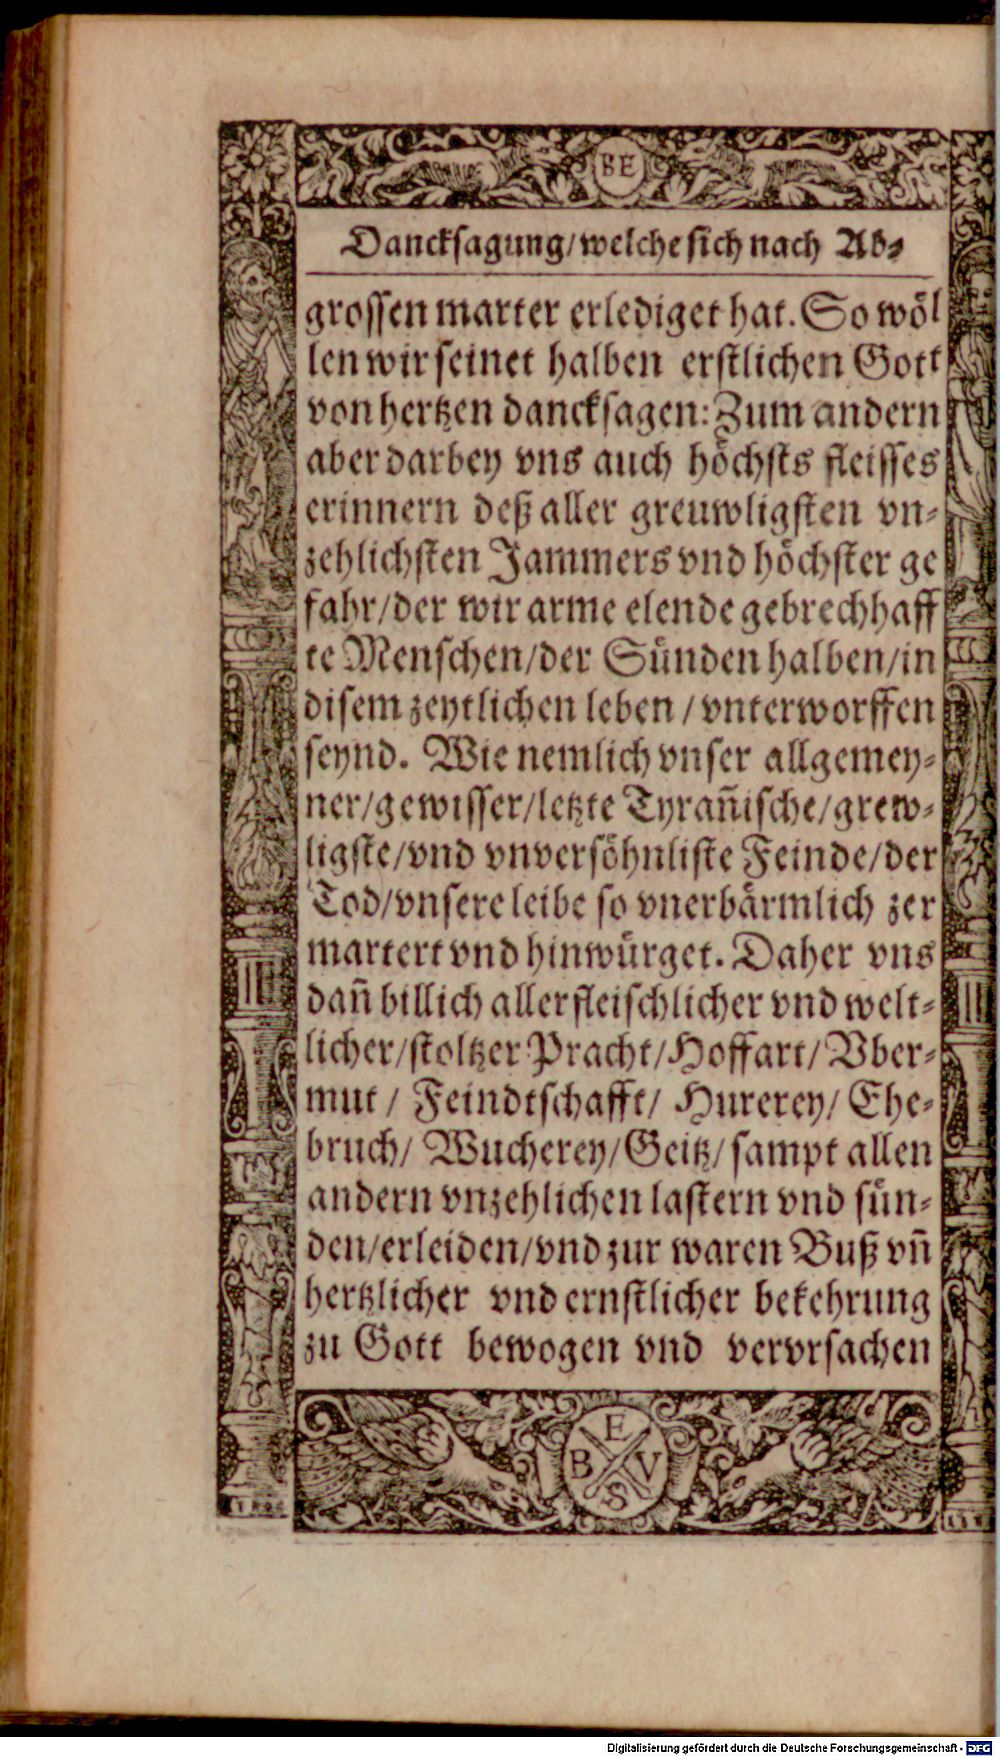 BE
Dancksagung/welche sich nach Ab-
grossen marter erlediget hat. So wöl
len wir seinet halben erstlichen Gott
von hertzen dancksagen: Zum andern
aber darbey vns auch höchsts fleisses
erinnern deß aller greuwligsten vn-
zehlichsten Jammers vnd höchster ge
fahr/der wir arme elende gebrechhaff
te Menschen/der Sünden halben/in
disem zeytlichen leben/vnterworffen
seynd. Wie nemlich vnser allgemey-
ner/gewisser/letzte Tyrañische/grew-
ligste/vnd vnversöhnliste Feinde/der
Tod/vnsere leibe so vnerbärmlich zer
martert vnd hinwürget. Daher vns
dañ billich aller fleischlicher vnd welt-
licher/stoltzer Pracht/Hoffart/Vber-
mut/ Feindtschafft/ Hurerey/ Ehe-
bruch/ Wucherey/Geitz/sampt allen
andern vnzehlichen lastern vnd sün-
den/erleiden/vnd zur waren Buß vñ
hertzlicher vnd ernstlicher bekehrung
zu Gott bewogen vnd vervrsachen
E
B V
S
Digitalisierung gefördert durch die Deutsche Forschungsgemeinschaft - DFG